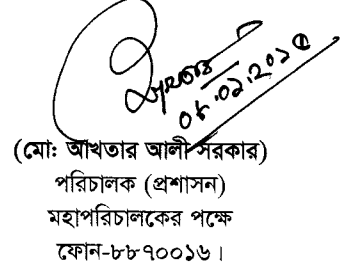 (মো: আখতার আলী সরকার)
পরিচালক (প্রশাসন)
মহাপরিচালকের পক্ষে
ফোন-৮৮৭০০১৬।